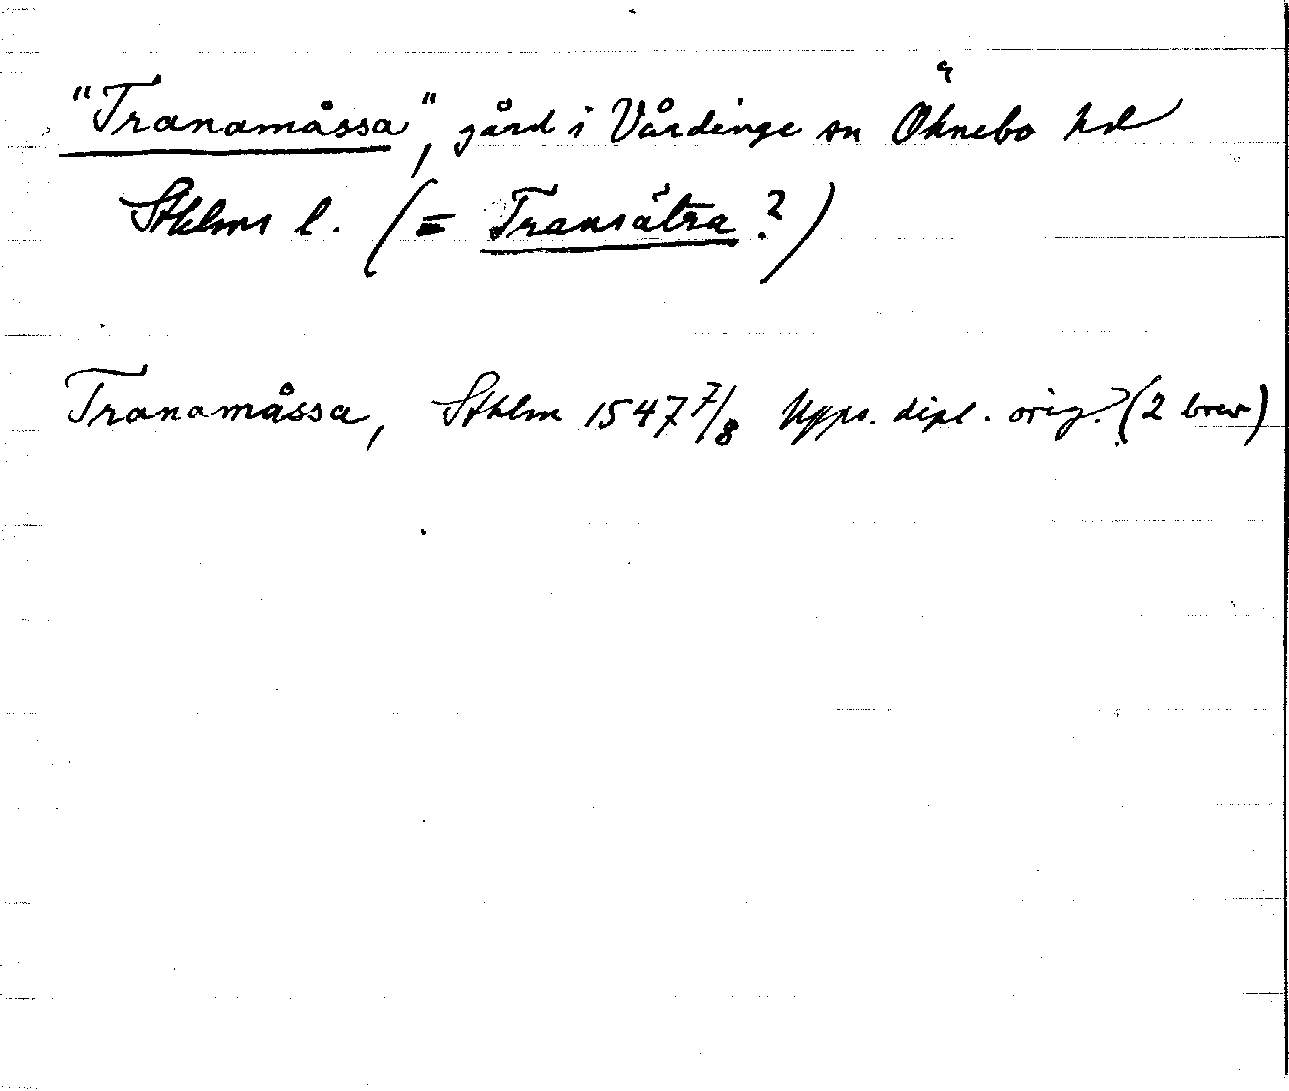 "Tranamåssa", gård i Vårdinge sn Öknebo hd
Stklms l. (= Transätra?)
Tranamåssa, Sthlm 1547 7/8 Upps. dipl. orig.? (2 brev)